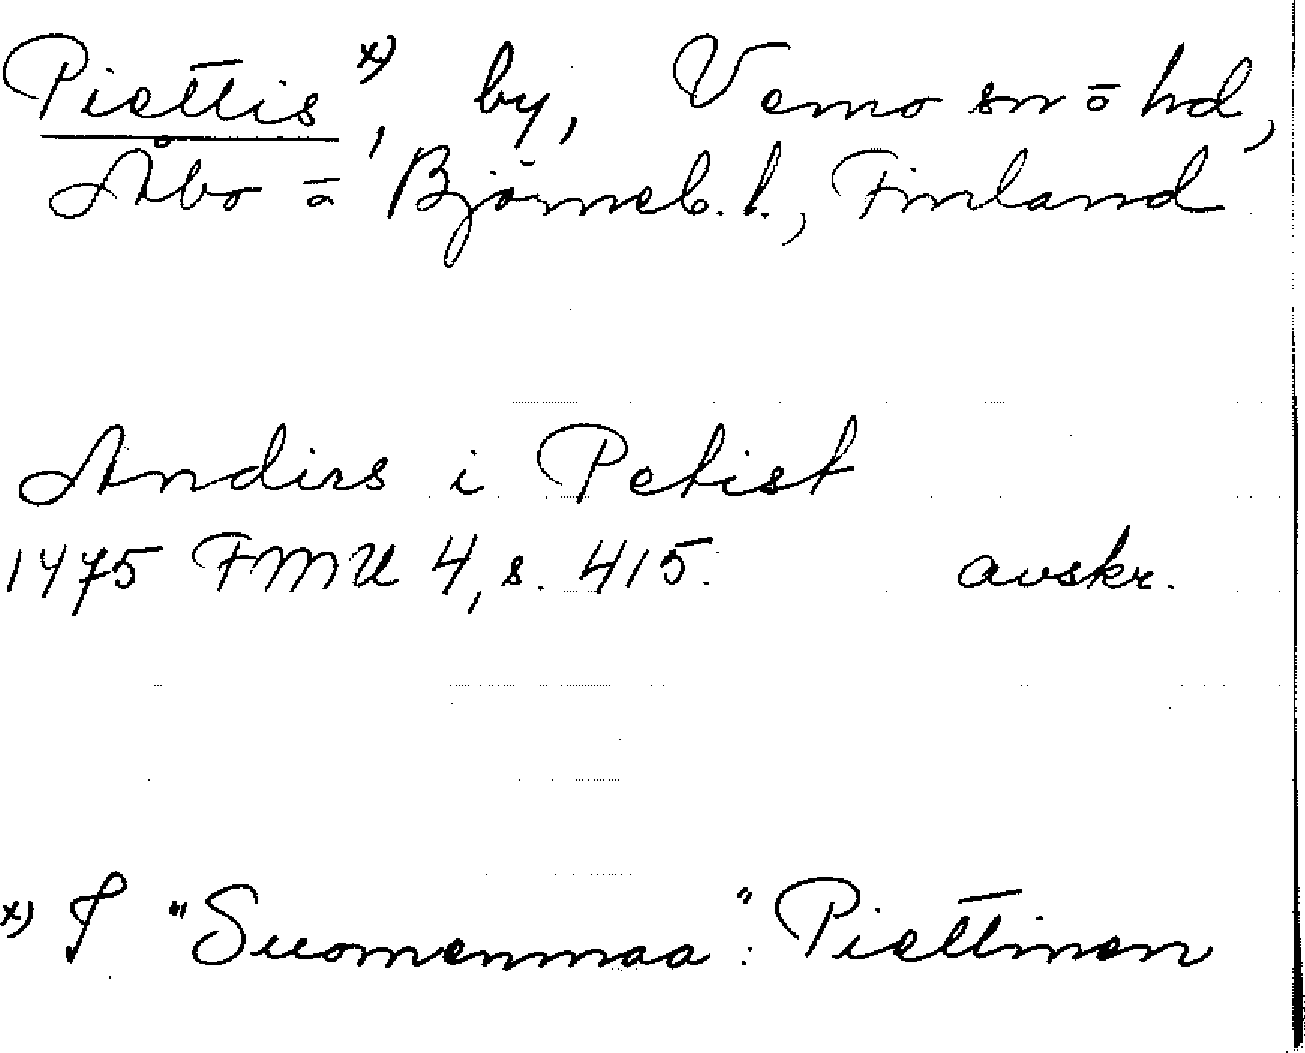 Piettis x), by, Vemo sn o hd,
Åbo o Björneb. l., Finland
Andirs i Petist
1475 FMU 4, s. 415. avskr.
x) I "Suomenmaa": Piettinen